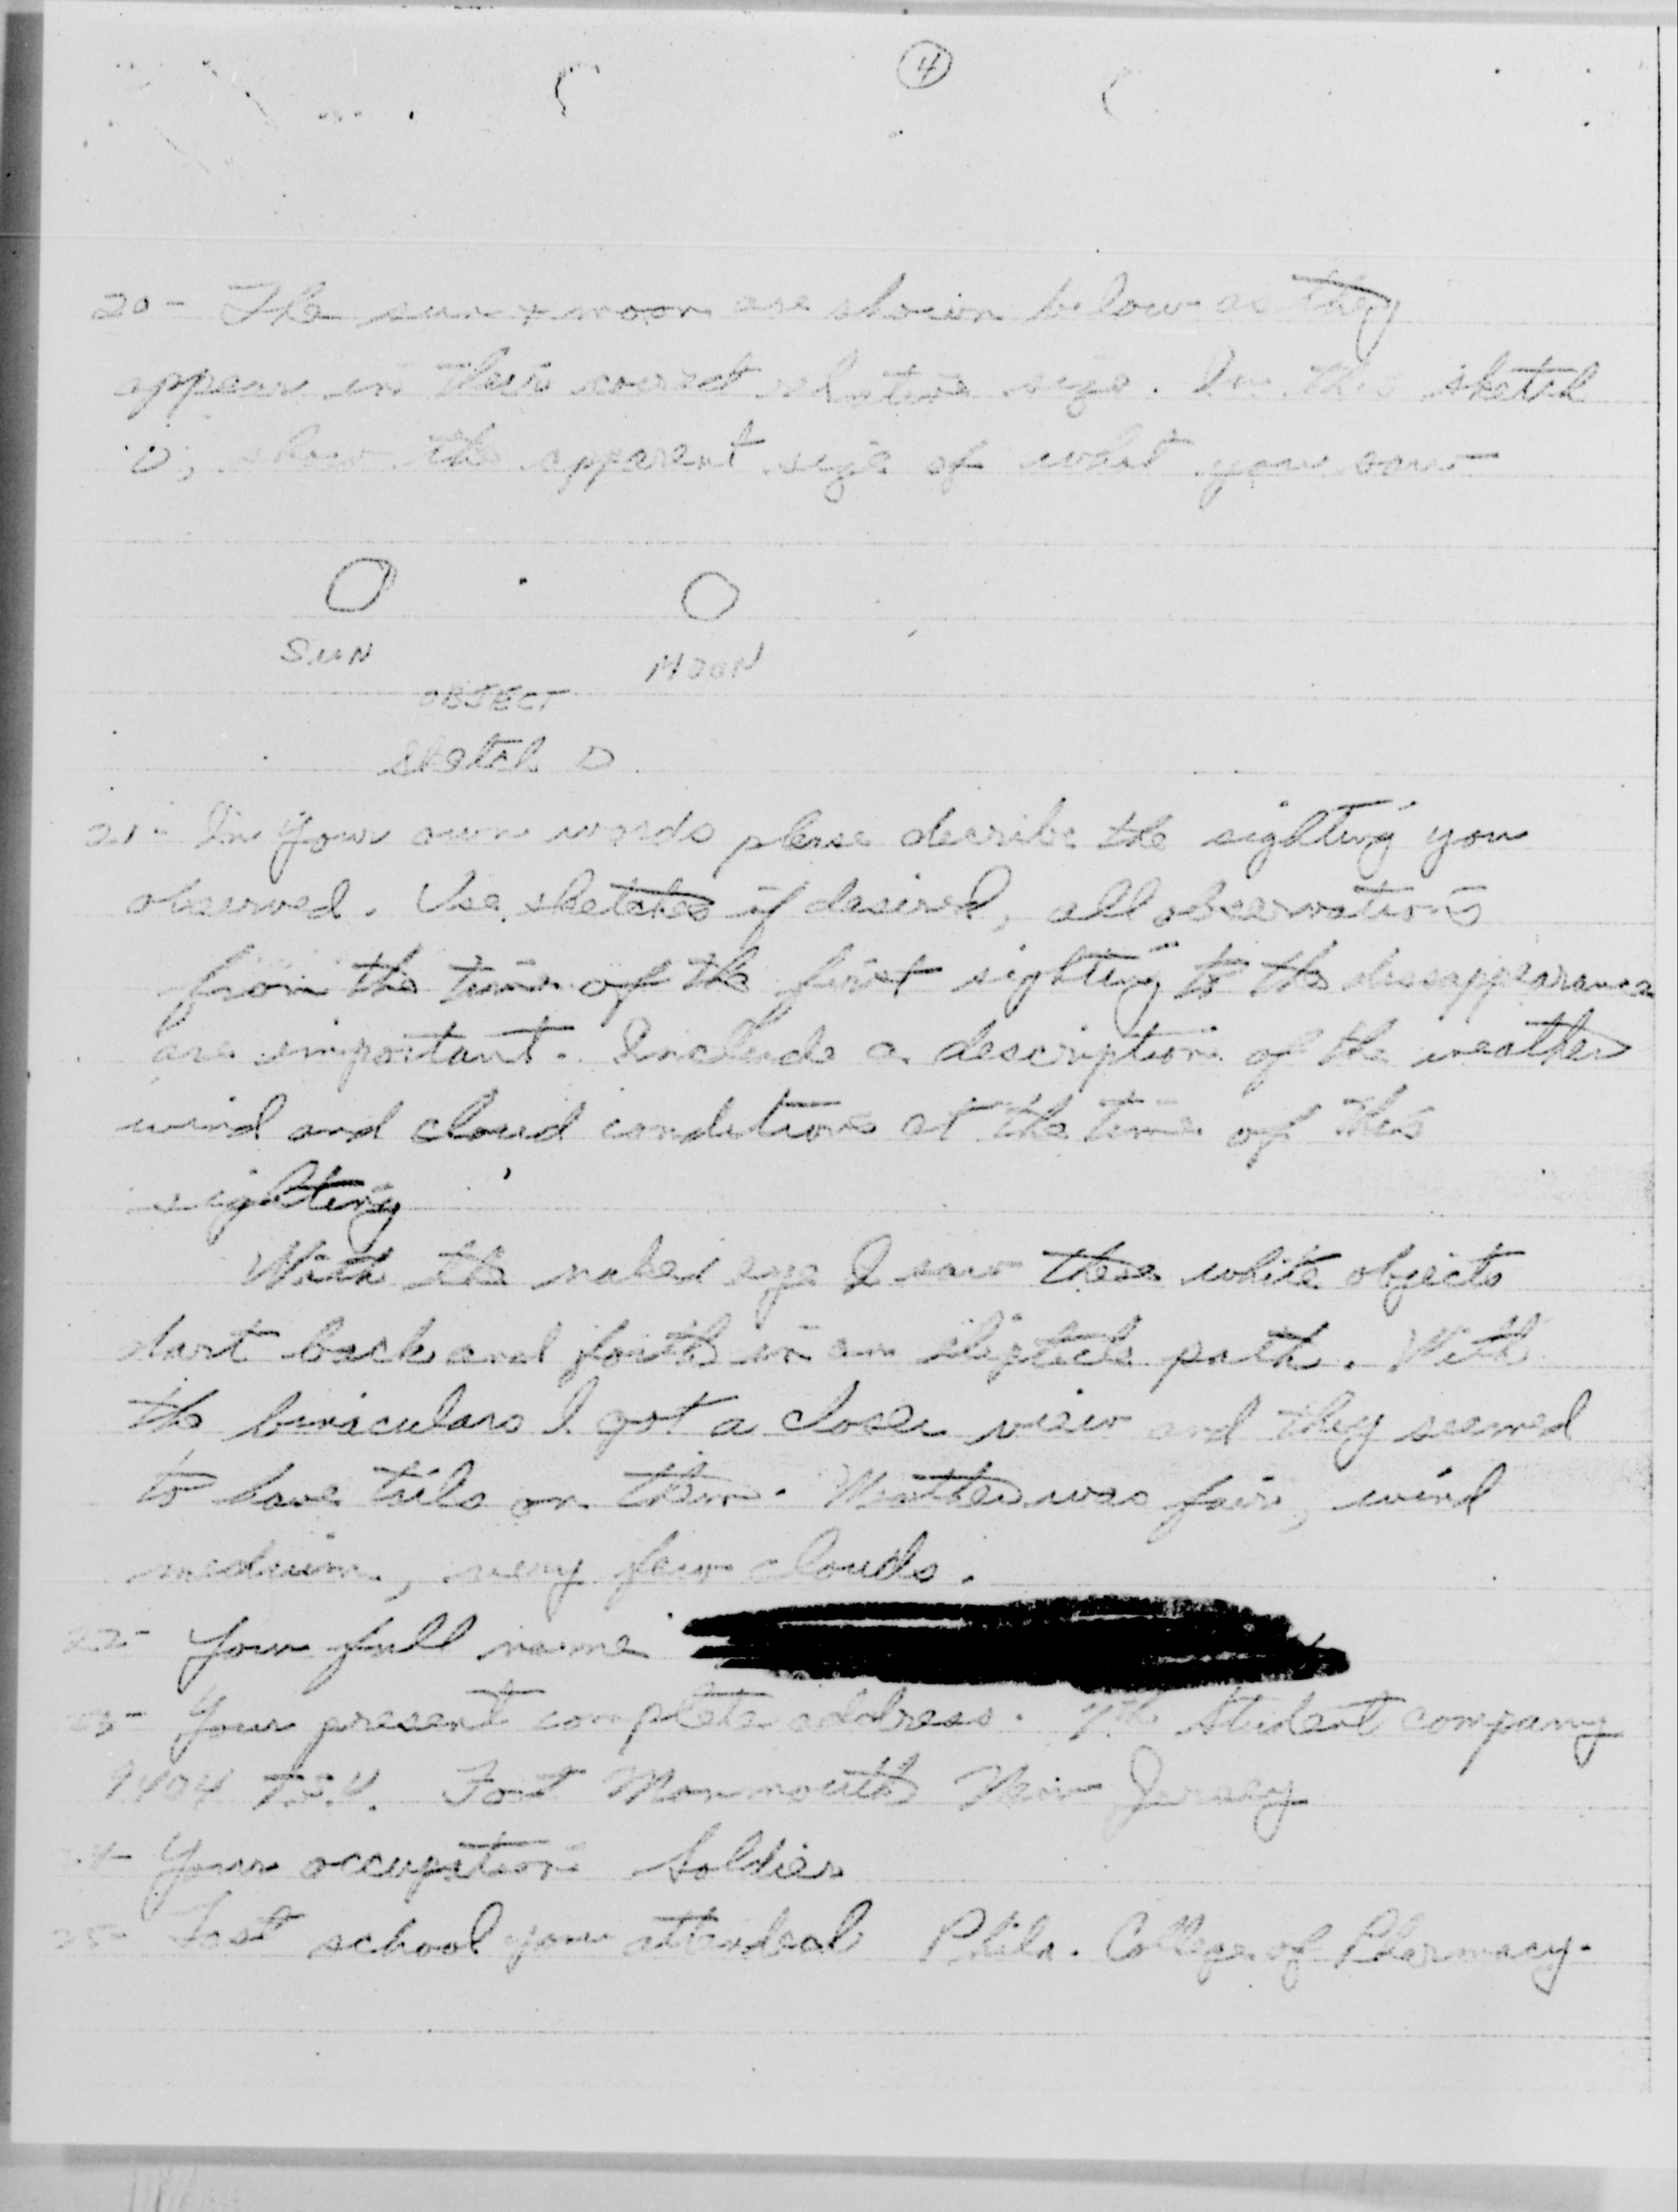 4
20- The sun + moon are shown below as they
appear in their correct relative size. In this sketch
D, show the apparent size of what you saw
SUN
MOON
OBJECT
Sketch D
21- In Your own words please describe the sighting you
observed. Use sketches if desired, all observations
from the time of the first sighting to the dissappearance
are important. Include a description of the weather
wind and cloud conditions at the time of this
sighting
With the naked eye I saw these white objects
dart back and forth in an path. With
the binaculars I got a closer view and they seemed
to have tails on them. Weather was fair, wind
medium, very few clouds.
22- Your full name
23- Your present complete address. 7th Student company
9404 T.S.U. Fort Monmouth New Jersey
24- Your occupation Soldier
25- Last school you attended Phila. College of Pharmacy.